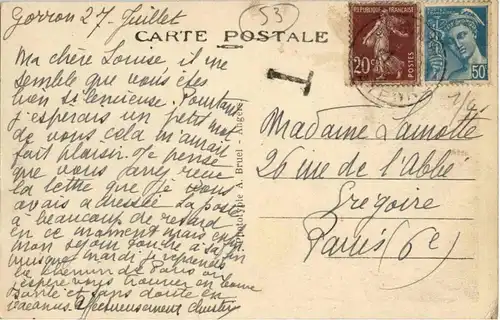 Gorron 27 Juillet
53
CARTE POSTALE
REPUBLIQUE FRANÇAISE
20c
POSTES
50c
T
Ma chère Louise il me
semble que vous êtes
bien silencieuse. Pourtant
j'espérais un petit mot
de vous cela m'aurait
fait plaisir. Je pense
que vous avez reçu
la lettre que je vous
avais adressée la poste
a beaucoup de retard
en ce moment mais enfin
mon séjour touche à sa fin
puisque mardi je reprends
le chemin de Paris où
j'espère vous trouver en bonne
santé et sans doute en
vacances. Affectueusement
Phototypie A. Bruel - Angers
Madame Lamotte
26 rue de l'Abbé
Grégoire
Paris (6e)